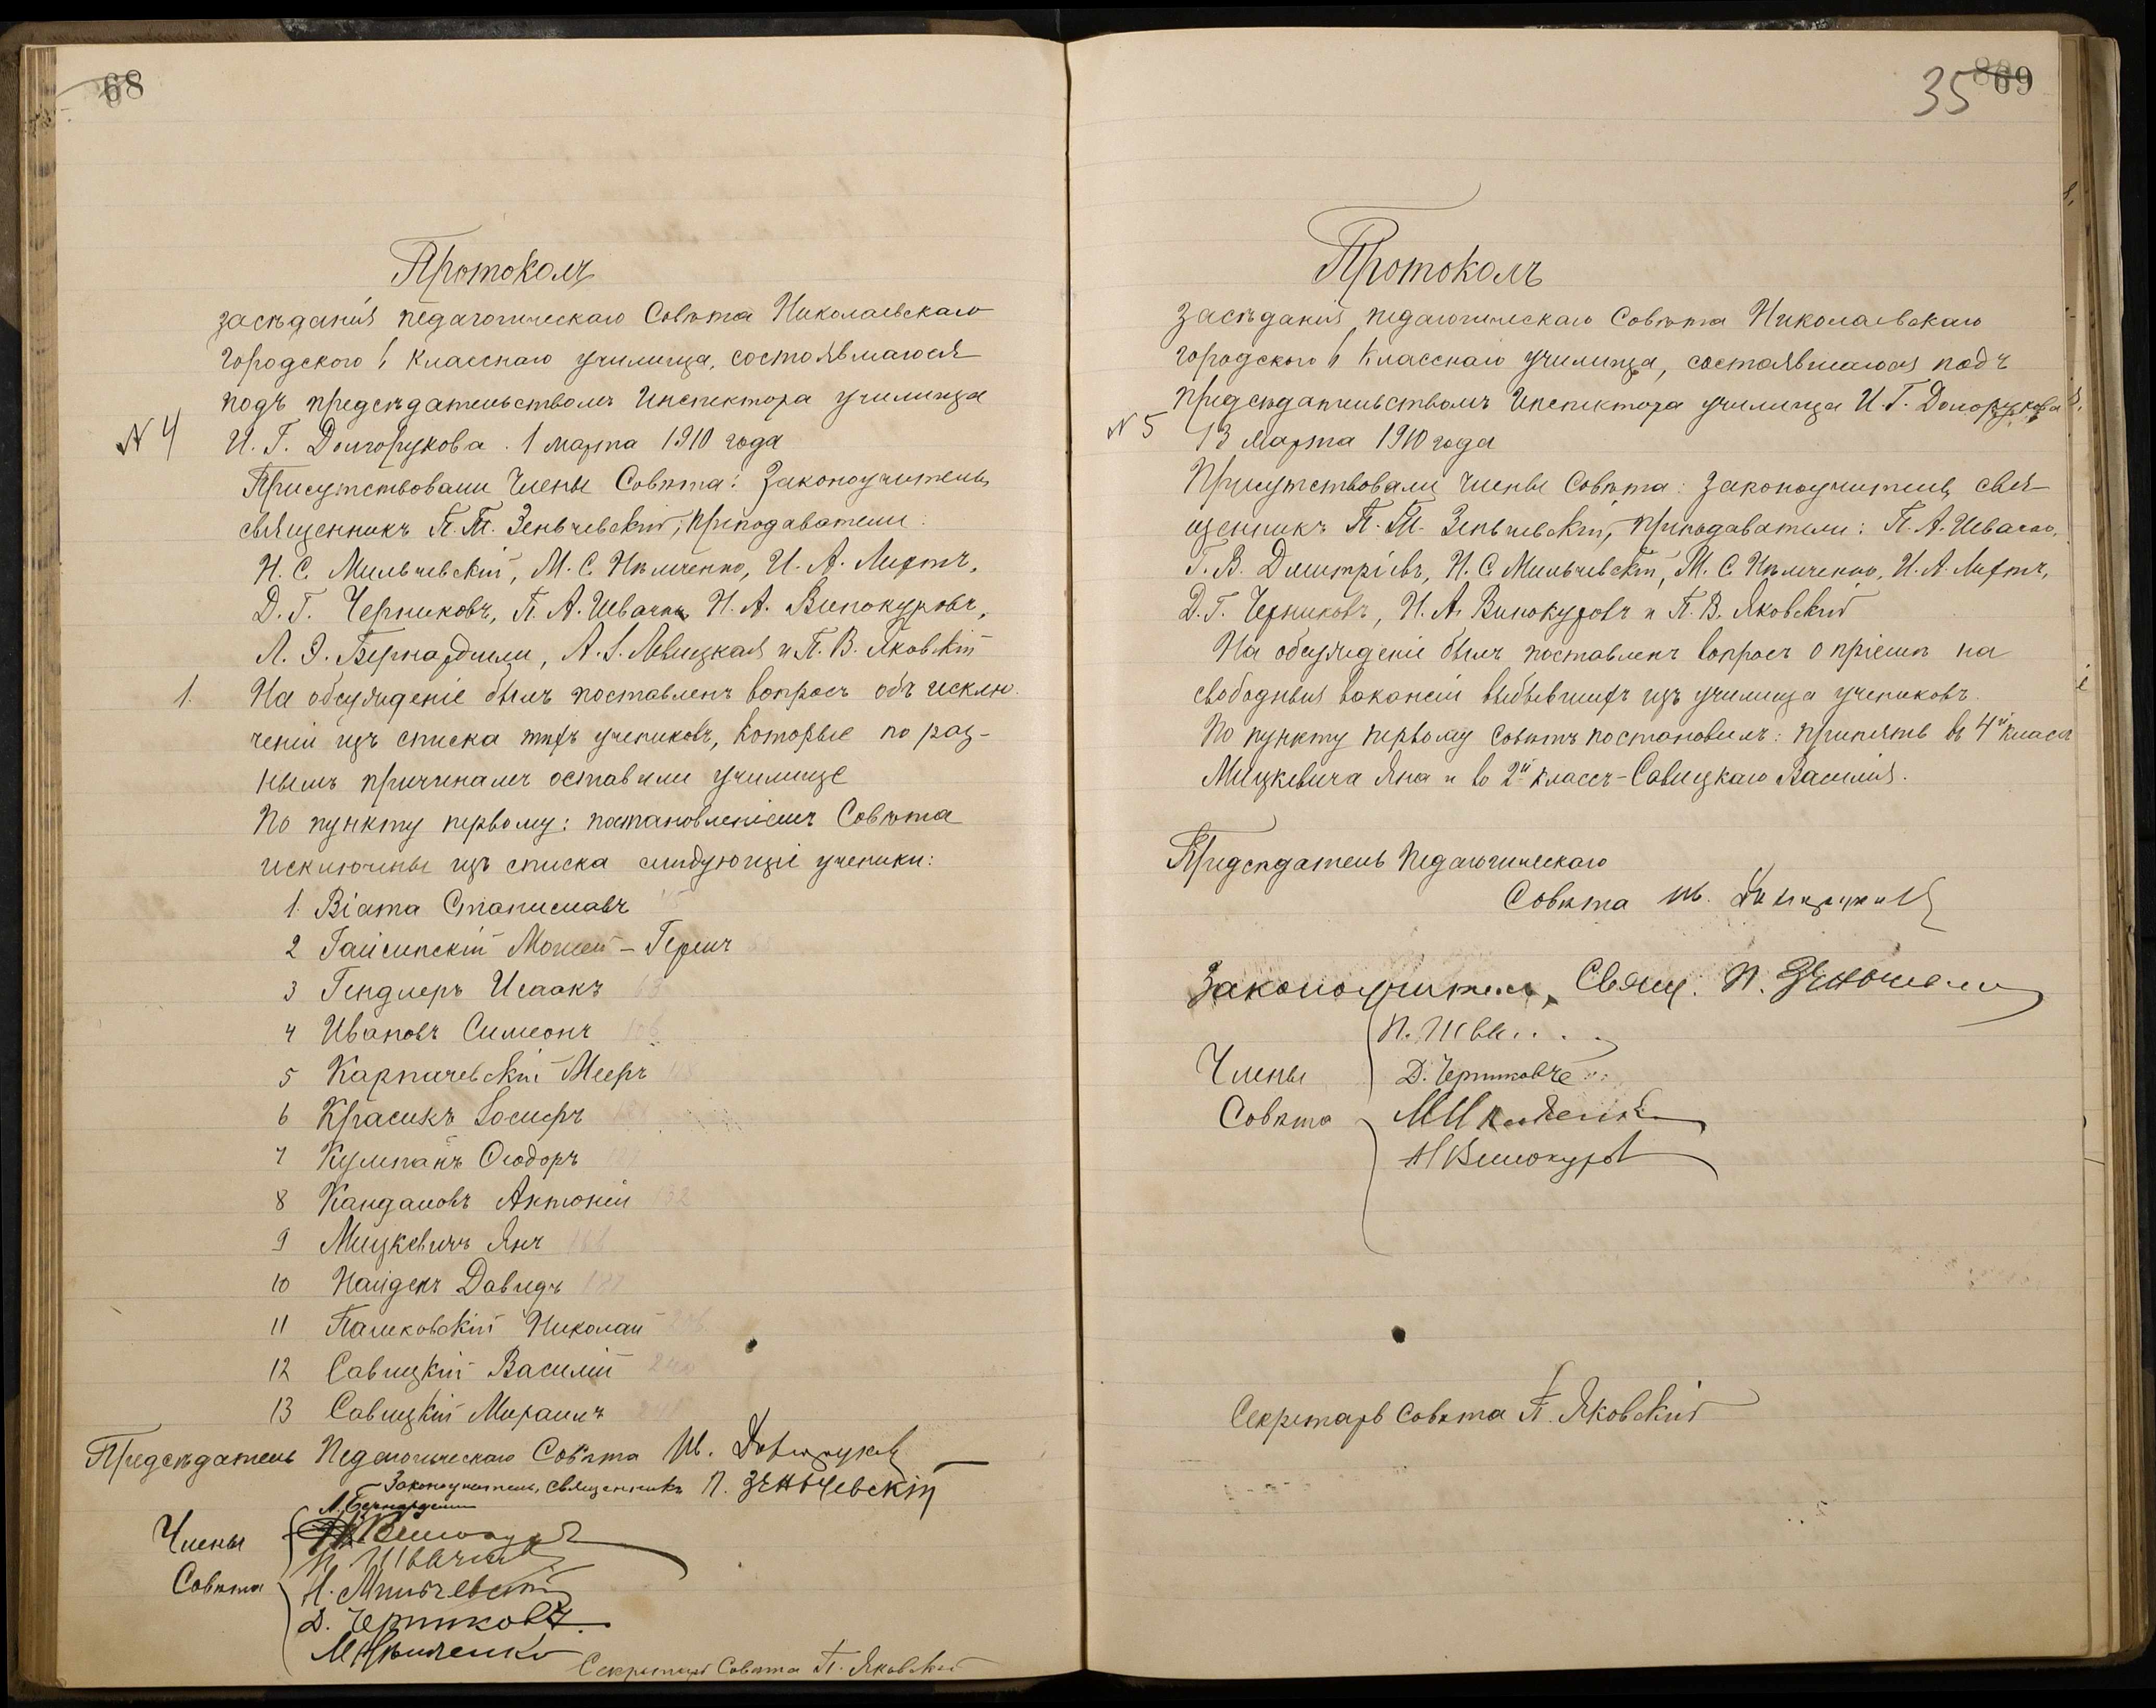 68
Протоколъ
засѣданія педагогическаго Совѣта Николаевскаго
городского 6 класснаго училища, состоявшагося
подъ предсѣдательствомъ Инспектора училища
N 4
И. Г. Долгорукова. 1 марта 1910 года
Присутствовали Члены Совѣта: Законоучитель,
священникъ П. Т. Зеньчевскій; преподаватели:
Н. С. Мильчевскій, М. С. Нѣмченко, И. А. Лифтъ,
Д. Г. Черниковъ, П. А. Швачко, Н. А. Винокуровъ,
Л. Э. Бернардели, А. І. Левицкая и П. В. Яковскій
1. На обсужденіе былъ поставленъ вопросъ объ исклю-
ченіи изъ списка тѣхъ учениковъ, которые по раз-
нымъ причинамъ оставили училище
По пункту первому: постановленіемъ Совѣта
исключены изъ списка слѣдующіе ученики:
1. Віата Станиславъ
2 Гайсинскій Мошей - Гершъ
3 Гендлеръ Исаакъ
4 Ивановъ Симеонъ
5 Карпачевскій Мееръ
6 Красикъ Іосифъ
7 Кулпанъ Ѳеодоръ
8 Кандаловъ Антоній 132
9 Мицкевичъ Янъ 166
10 Найденъ Давидъ
11 Пашковскій Николай
12 Савицкій Василій 240
13 Савицкій Мираимъ
Предсѣдатель Педагогическаго Совѣта Ив. Долгоруковъ
Законоучитель, священникъ П. Зеньчевскій
Л. Бернардели
Члены
Н Винокуровъ
П. Швачко
Совѣта
Н. Мильчевскій
Д. Черниковъ.
М Нѣмченко
Секретарь Совѣта П. Яковскій
35 69
Протоколъ
засѣданія педагогическаго Совѣта Николаевскаго
городского 6 класснаго училища, состоявшагося подъ
предсѣдательствомъ Инспектора училища И. Г. Долгорукова
N 5
13 марта 1910 года
Присутствовали члены Совѣта: законоучитель, свя-
щенникъ П. Т. Зеньчевскій, преподаватели: П. А. Швачко,
Г. В. Димитріевъ, Н. С. Мильчевскій, М. С. Нѣмченко, И. А. Лифтъ,
Д. Г. Черниковъ, Н. А. Винокуровъ и П. В. Яковскій
На обсужденіе былъ поставленъ вопросъ о пріемѣ на
свободныя вакансіи выбывшихъ изъ училища учениковъ.
По пункту первому Совѣтъ постановилъ: принять въ 4й классъ
Мицкевича Яна и во 2й классъ - Савицкаго Василія.
Предсѣдатель Педагогическаго
Совѣта Ив. Долгоруковъ
Законоучитель, Свящ. П. Зеньчевскій
П. Швачко
Члены
Д. Черниковъ
Совѣта
М Нѣмченко
Н Винокуровъ
Секретарь Совѣта П. Яковскій